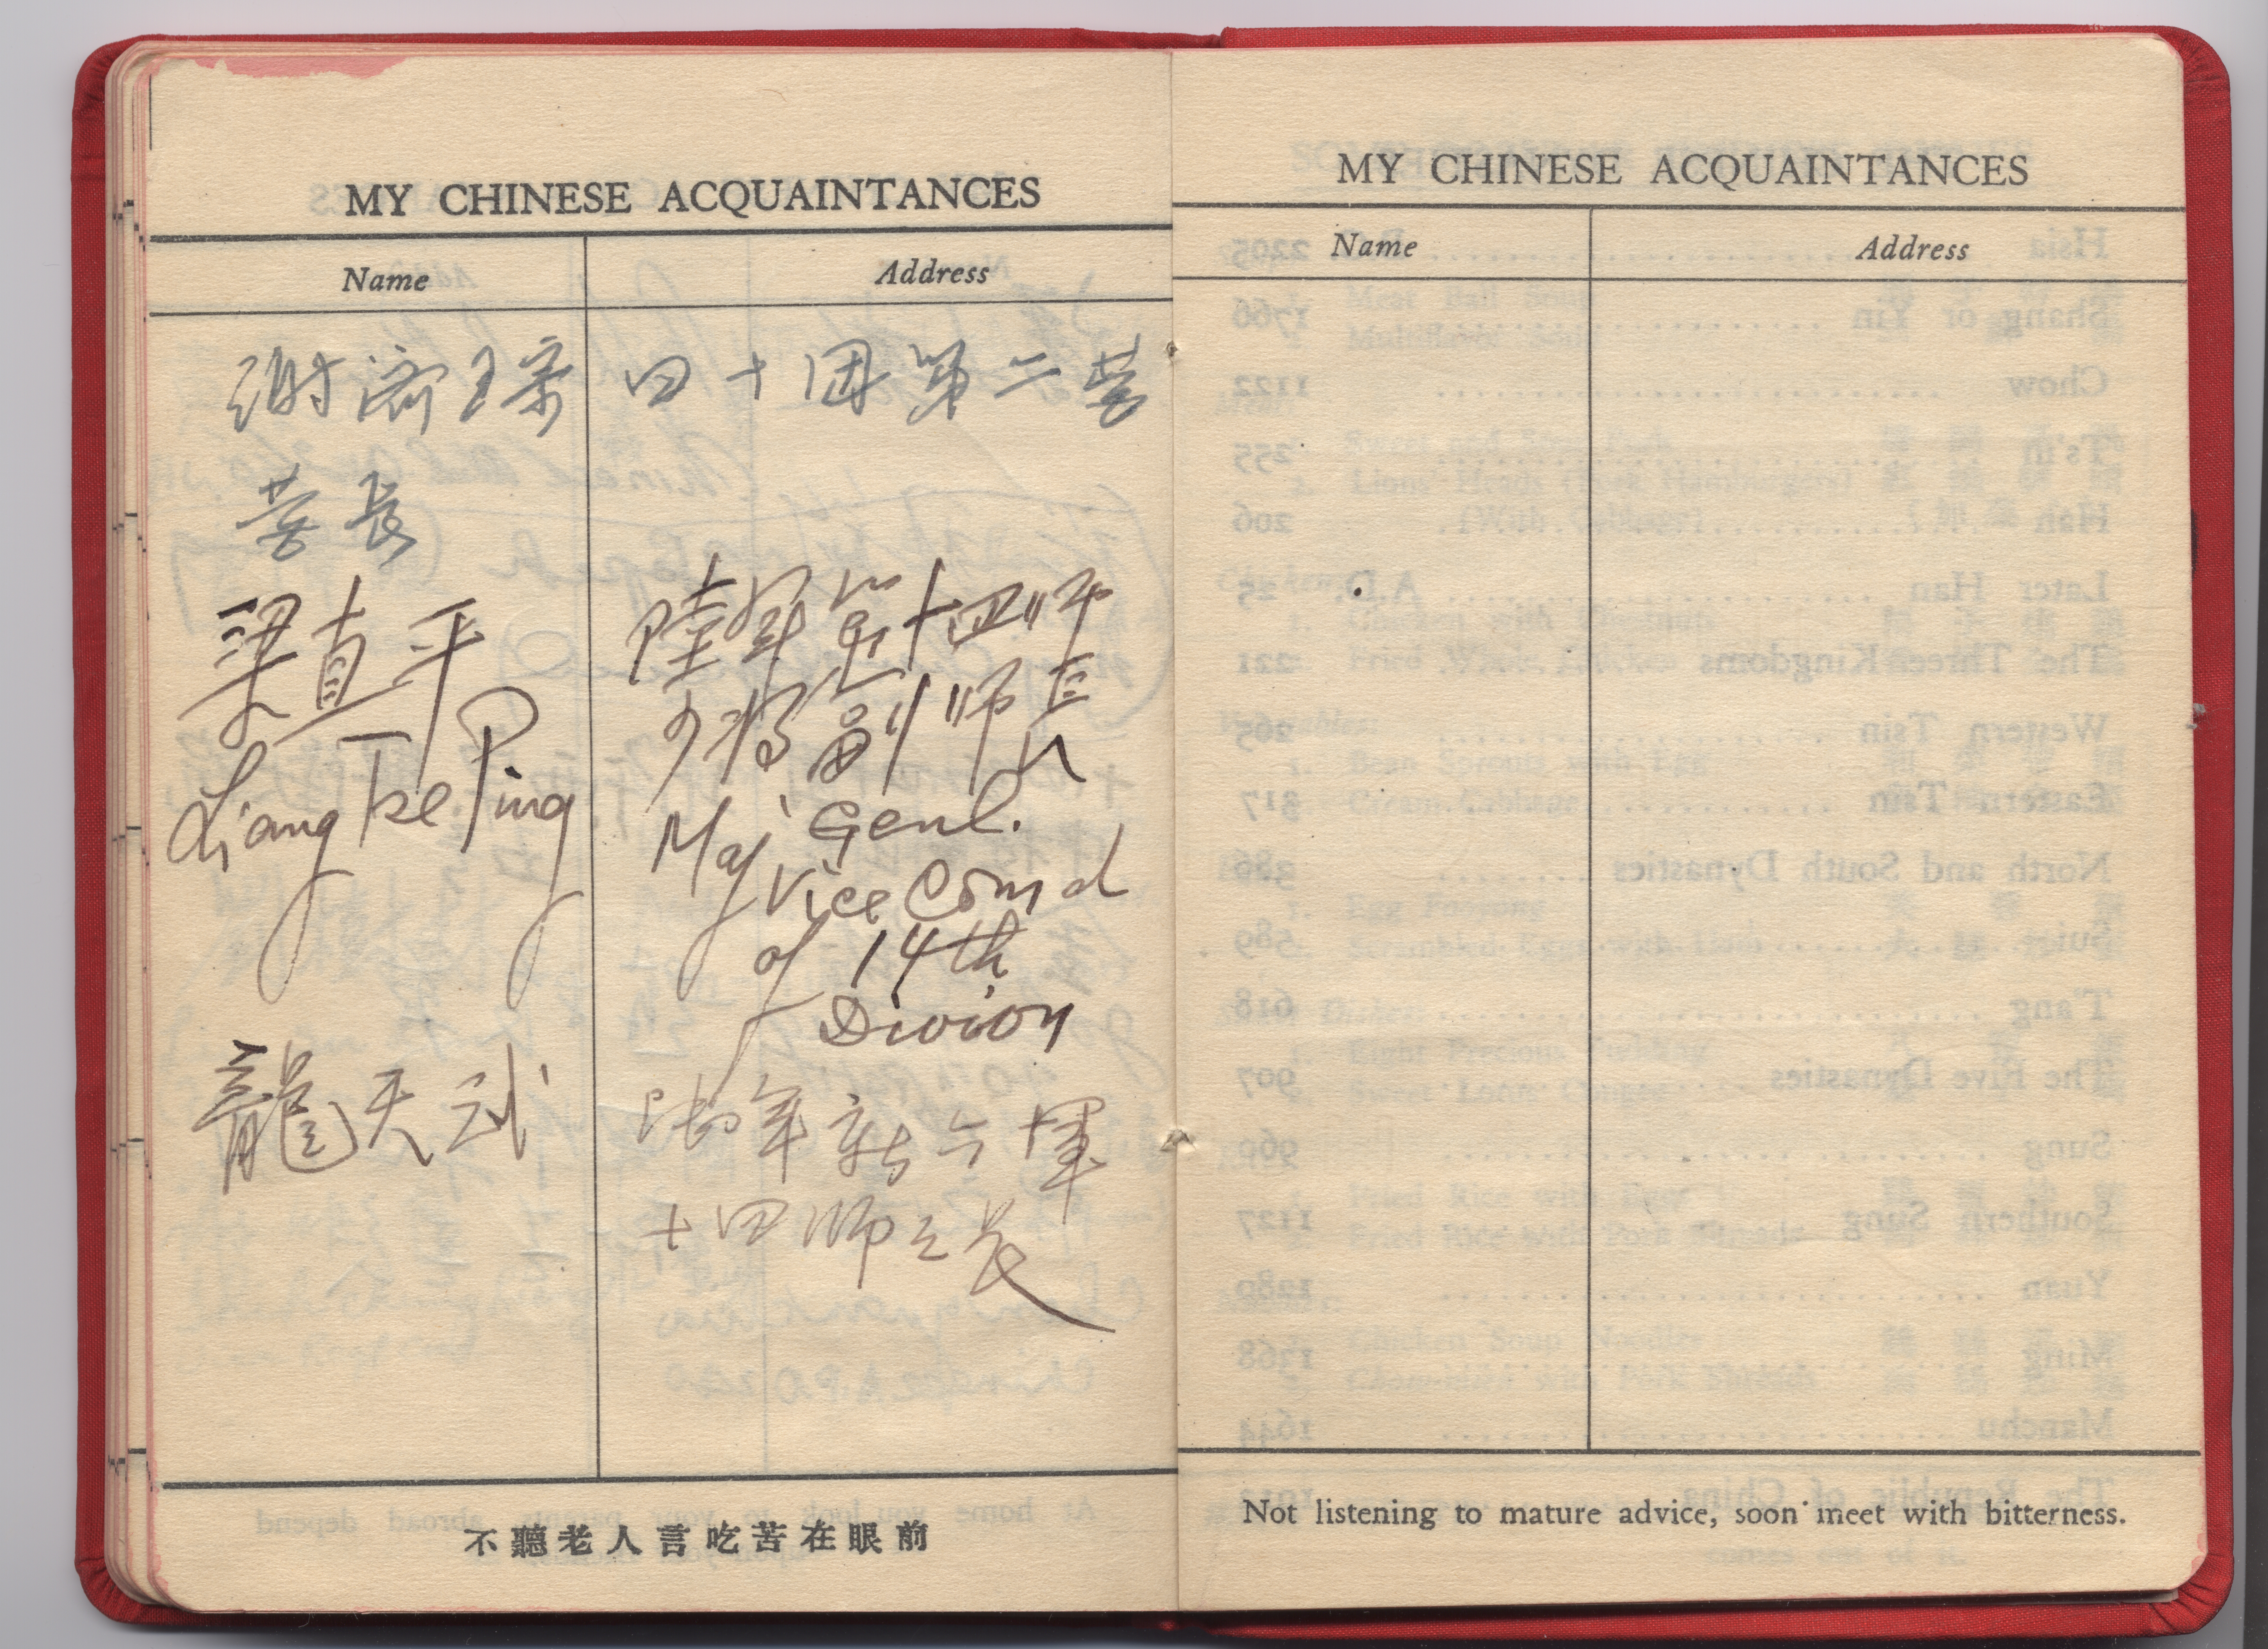 MY CHINESE ACQUAINTANCES
Name Address
謝濟 四十團第二營
營長
梁直平 陸軍第十四師
少將副師長
Liang Tse Ping
Maj Genl.
Vice Com d
of 14th
Division
龍天武 陸軍新六軍
十四師師長
不聽老人言吃苦在眼前
MY CHINESE ACQUAINTANCES
Name Address
Not listening to mature advice, soon meet with bitterness.